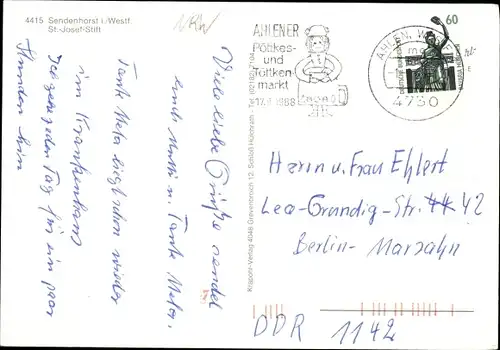 4415 Sendenhorst i./Westf.
St.-Josef-Stift
NRW
Viele liebe Grüße sendet
euch Mutti u. Tante Meta.
Tante Meta liegt schon wieder
im Krankenhaus
Ich gehe jeden Tag für ein paar
Stunden hin
Krapohl-Verlag 4048 Grevenbroich 12, Schloß Hülchrath
AHLENER
Pöttkes-
und
Töttken-
markt
AHLEN, WESTF
4730
60
Herrn u. Frau Ehlert
Lea-Grundig-Str. 44 42
Berlin-Marzahn
DDR 1142